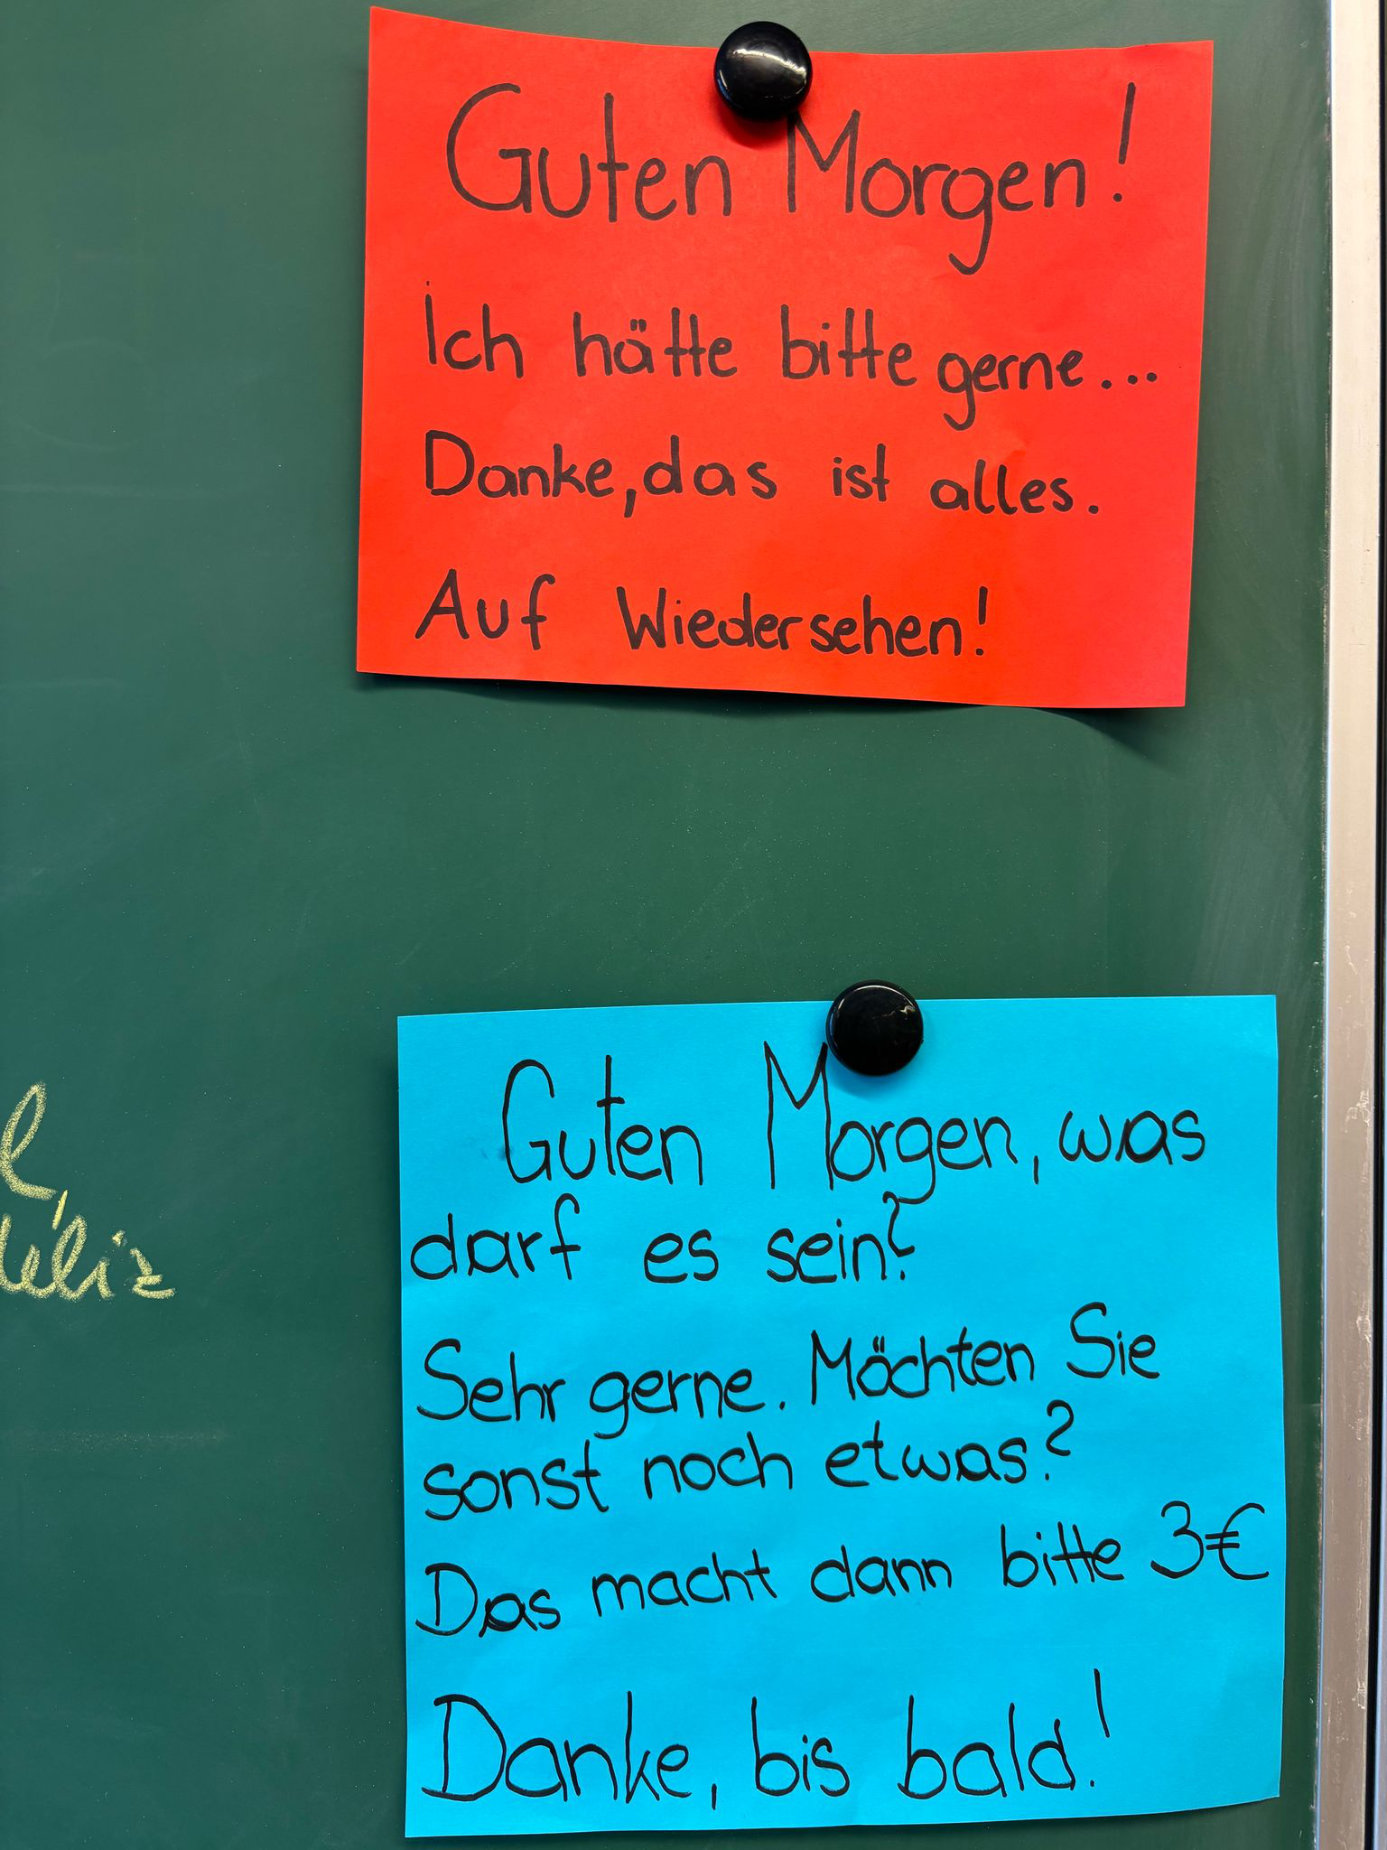 Guten Morgen!
Ich hätte bitte gerne...
Danke, das ist alles.
Auf Wiedersehen!
Guten Morgen, was
darf es sein?
Sehr gerne. Möchten Sie
sonst noch etwas?
Das macht dann bitte 3€
Danke, bis bald!